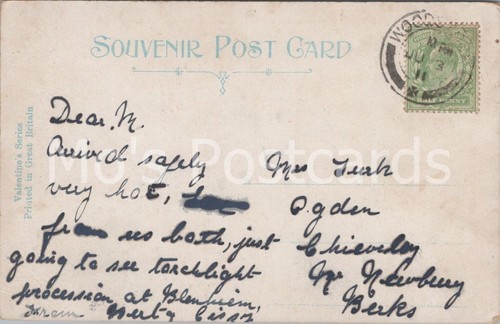 SOUVENIR POST CARD
Valentine's Series
Printed in Great Britain
Mo's Postcards
Dear M.
Arrived safely
very hot,
from us both, just
going to see torchlight
procession at Blenheim,
Berty Cissy
Mrs Turk
Ogden
Chieveley
Nr Newbury
Berks